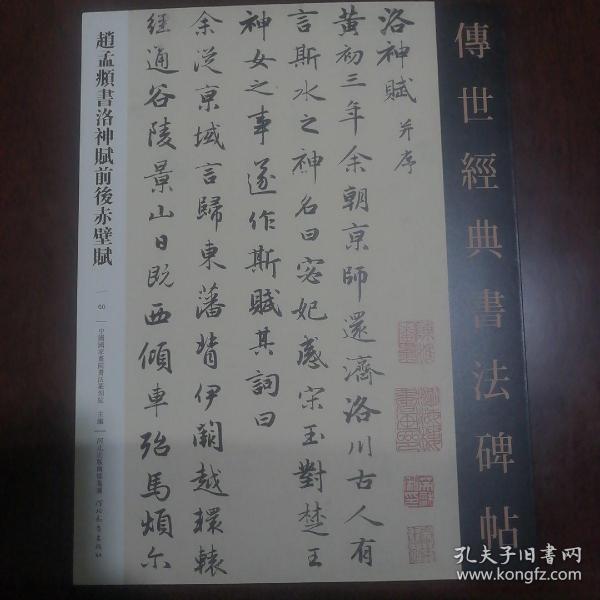 傳世經典書法碑帖
洛神賦 并序
黃初三年余朝京師還濟洛川古人有
言斯水之神名曰宓妃感宋玉對楚王
神女之事遂作斯賦其詞曰
余從京域言歸東藩背伊闕越轘轅
經通谷陵景山日既西傾車殆馬煩尔
趙孟頫書洛神賦前後赤壁賦
60
中國國家畫院書法篆刻院 主編
河北出版傳媒集團 河北教育出版社
孔夫子旧书网
www.kongfz.com